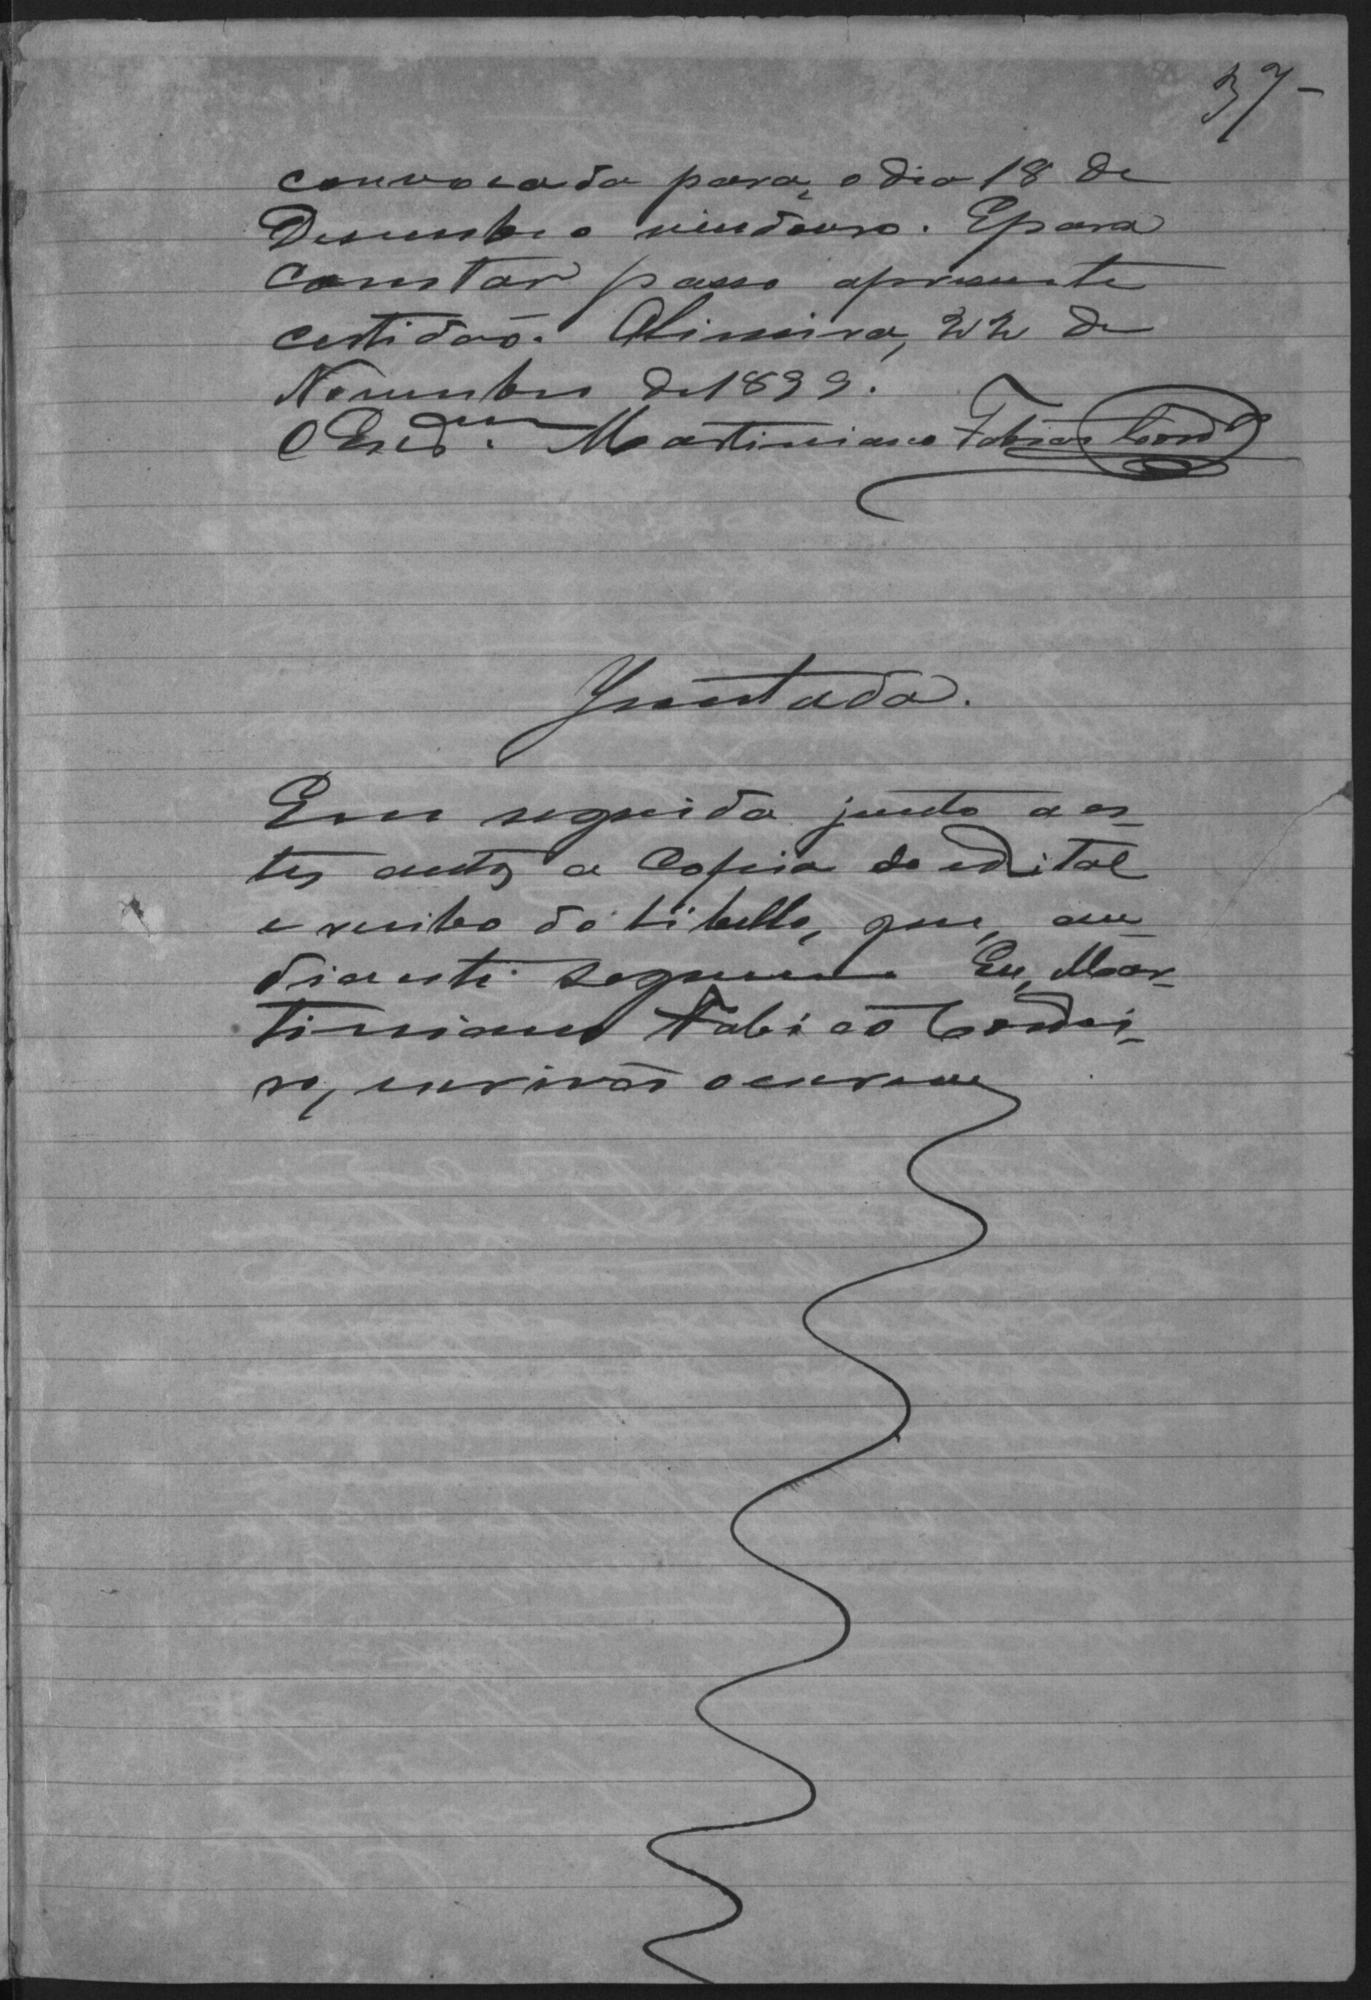 37-
convocada para, o dia 18 de
Desembro vindouro. E para
constar passo apresente
certidão. Limeira, 22 de
Novembro de 1899.
O Escr.am Martiniano Fabião Cordº
Juntada.
Em seguida junto a es-
tes autos a Copia do edital
e recibo do libello, que, a
diante seguem. Eu, Mar-
tiniano Fabião Cordei-
ro, escrivão o escrevi